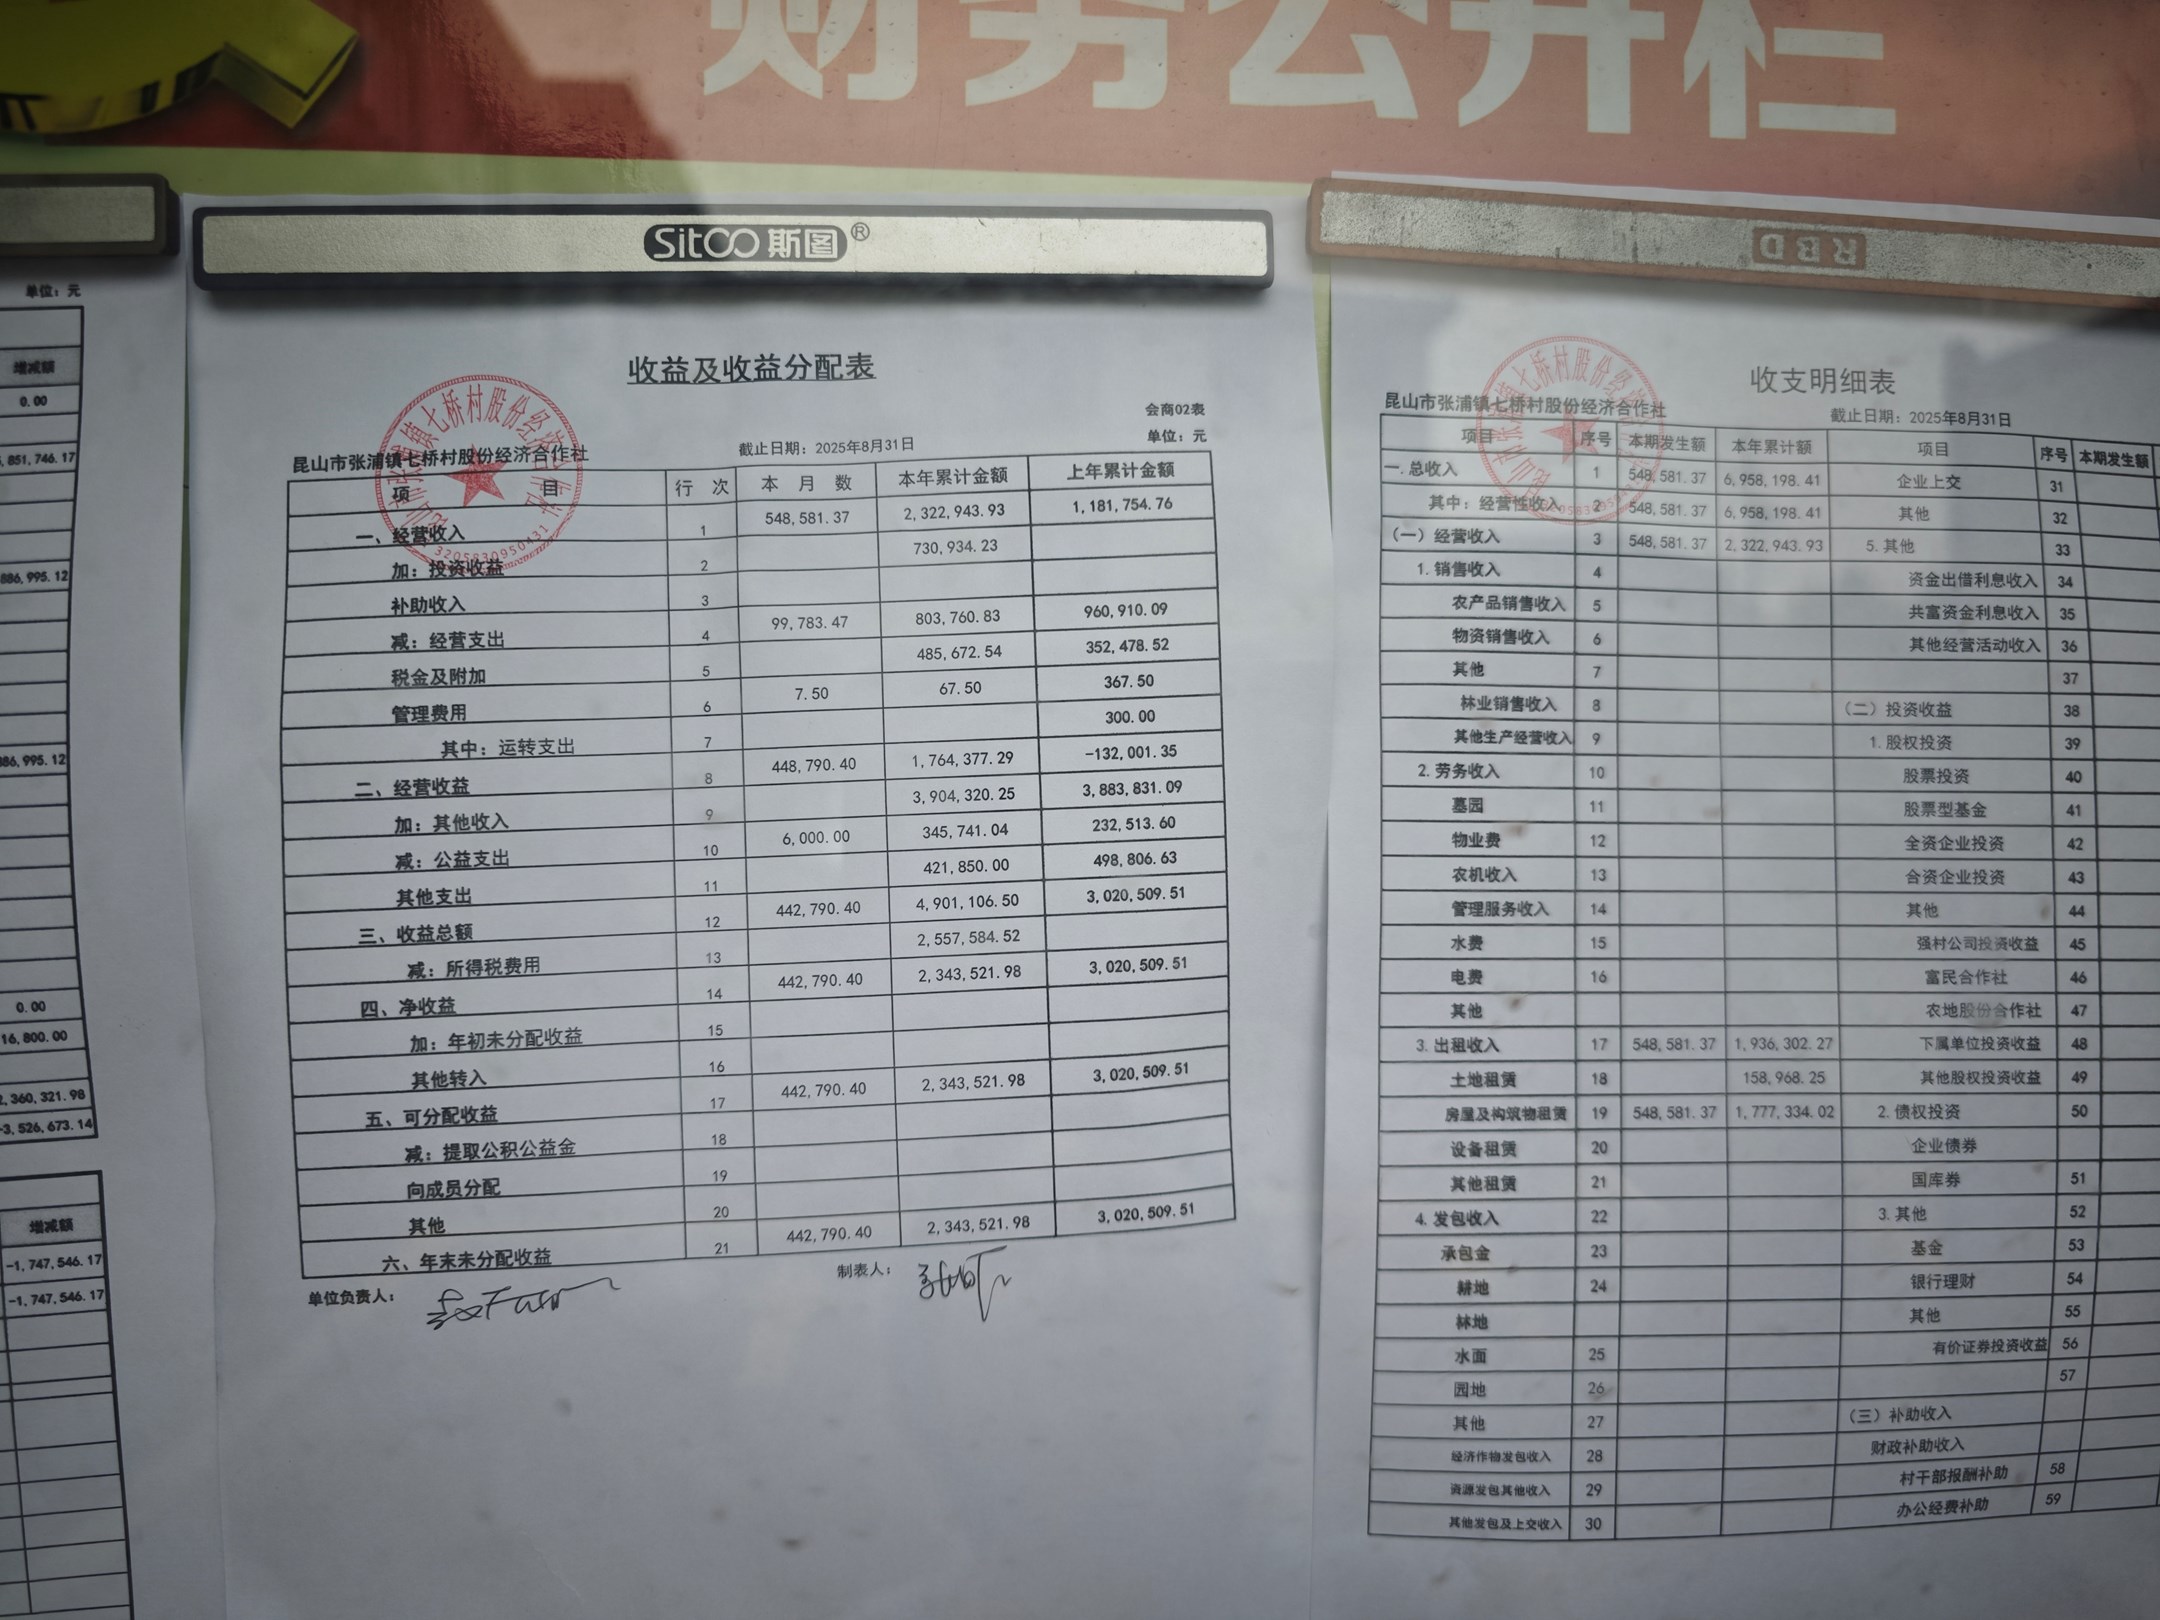 财务公开栏
Sitoo 斯图®
RBD
单位：元
增减额
0.00
,851,746.17
886,995.12
886,995.12
0.00
16,800.00
2,360,321.98
-3,526,673.14
增减额
-1,747,546.17
-1,747,546.17
收益及收益分配表
会商02表
昆山市张浦镇七桥村股份经济合作社 截止日期：2025年8月31日 单位：元
3205830950431
项 目 行 次 本 月 数 本年累计金额 上年累计金额
一、经营收入 1 548,581.37 2,322,943.93 1,181,754.76
加：投资收益 2 730,934.23
补助收入 3
减：经营支出 4 99,783.47 803,760.83 960,910.09
税金及附加 5 485,672.54 352,478.52
管理费用 6 7.50 67.50 367.50
其中：运转支出 7 300.00
二、经营收益 8 448,790.40 1,764,377.29 -132,001.35
加：其他收入 9 3,904,320.25 3,883,831.09
减：公益支出 10 6,000.00 345,741.04 232,513.60
其他支出 11 421,850.00 498,806.63
三、收益总额 12 442,790.40 4,901,106.50 3,020,509.51
减：所得税费用 13 2,557,584.52
四、净收益 14 442,790.40 2,343,521.98 3,020,509.51
加：年初未分配收益 15
其他转入 16
五、可分配收益 17 442,790.40 2,343,521.98 3,020,509.51
减：提取公积公益金 18
向成员分配 19
其他 20
六、年末未分配收益 21 442,790.40 2,343,521.98 3,020,509.51
单位负责人： 制表人：
收支明细表
昆山市张浦镇七桥村股份经济合作社 截止日期：2025年8月31日
项目 序号 本期发生额 本年累计额 项目 序号 本期发生额
一.总收入 1 548,581.37 6,958,198.41 企业上交 31
其中：经营性收入 2 548,581.37 6,958,198.41 其他 32
（一）经营收入 3 548,581.37 2,322,943.93 5.其他 33
1.销售收入 4 资金出借利息收入 34
农产品销售收入 5 共富资金利息收入 35
物资销售收入 6 其他经营活动收入 36
其他 7 37
林业销售收入 8 （二）投资收益 38
其他生产经营收入 9 1.股权投资 39
2.劳务收入 10 股票投资 40
墓园 11 股票型基金 41
物业费 12 全资企业投资 42
农机收入 13 合资企业投资 43
管理服务收入 14 其他 44
水费 15 强村公司投资收益 45
电费 16 富民合作社 46
其他 农地股份合作社 47
3.出租收入 17 548,581.37 1,936,302.27 下属单位投资收益 48
土地租赁 18 158,968.25 其他股权投资收益 49
房屋及构筑物租赁 19 548,581.37 1,777,334.02 2.债权投资 50
设备租赁 20 企业债券
其他租赁 21 国库券 51
4.发包收入 22 3.其他 52
承包金 23 基金 53
耕地 24 银行理财 54
林地 其他 55
水面 25 有价证券投资收益 56
园地 26 57
其他 27 （三）补助收入
经济作物发包收入 28 财政补助收入
资源发包其他收入 29 村干部报酬补助 58
其他发包及上交收入 30 办公经费补助 59